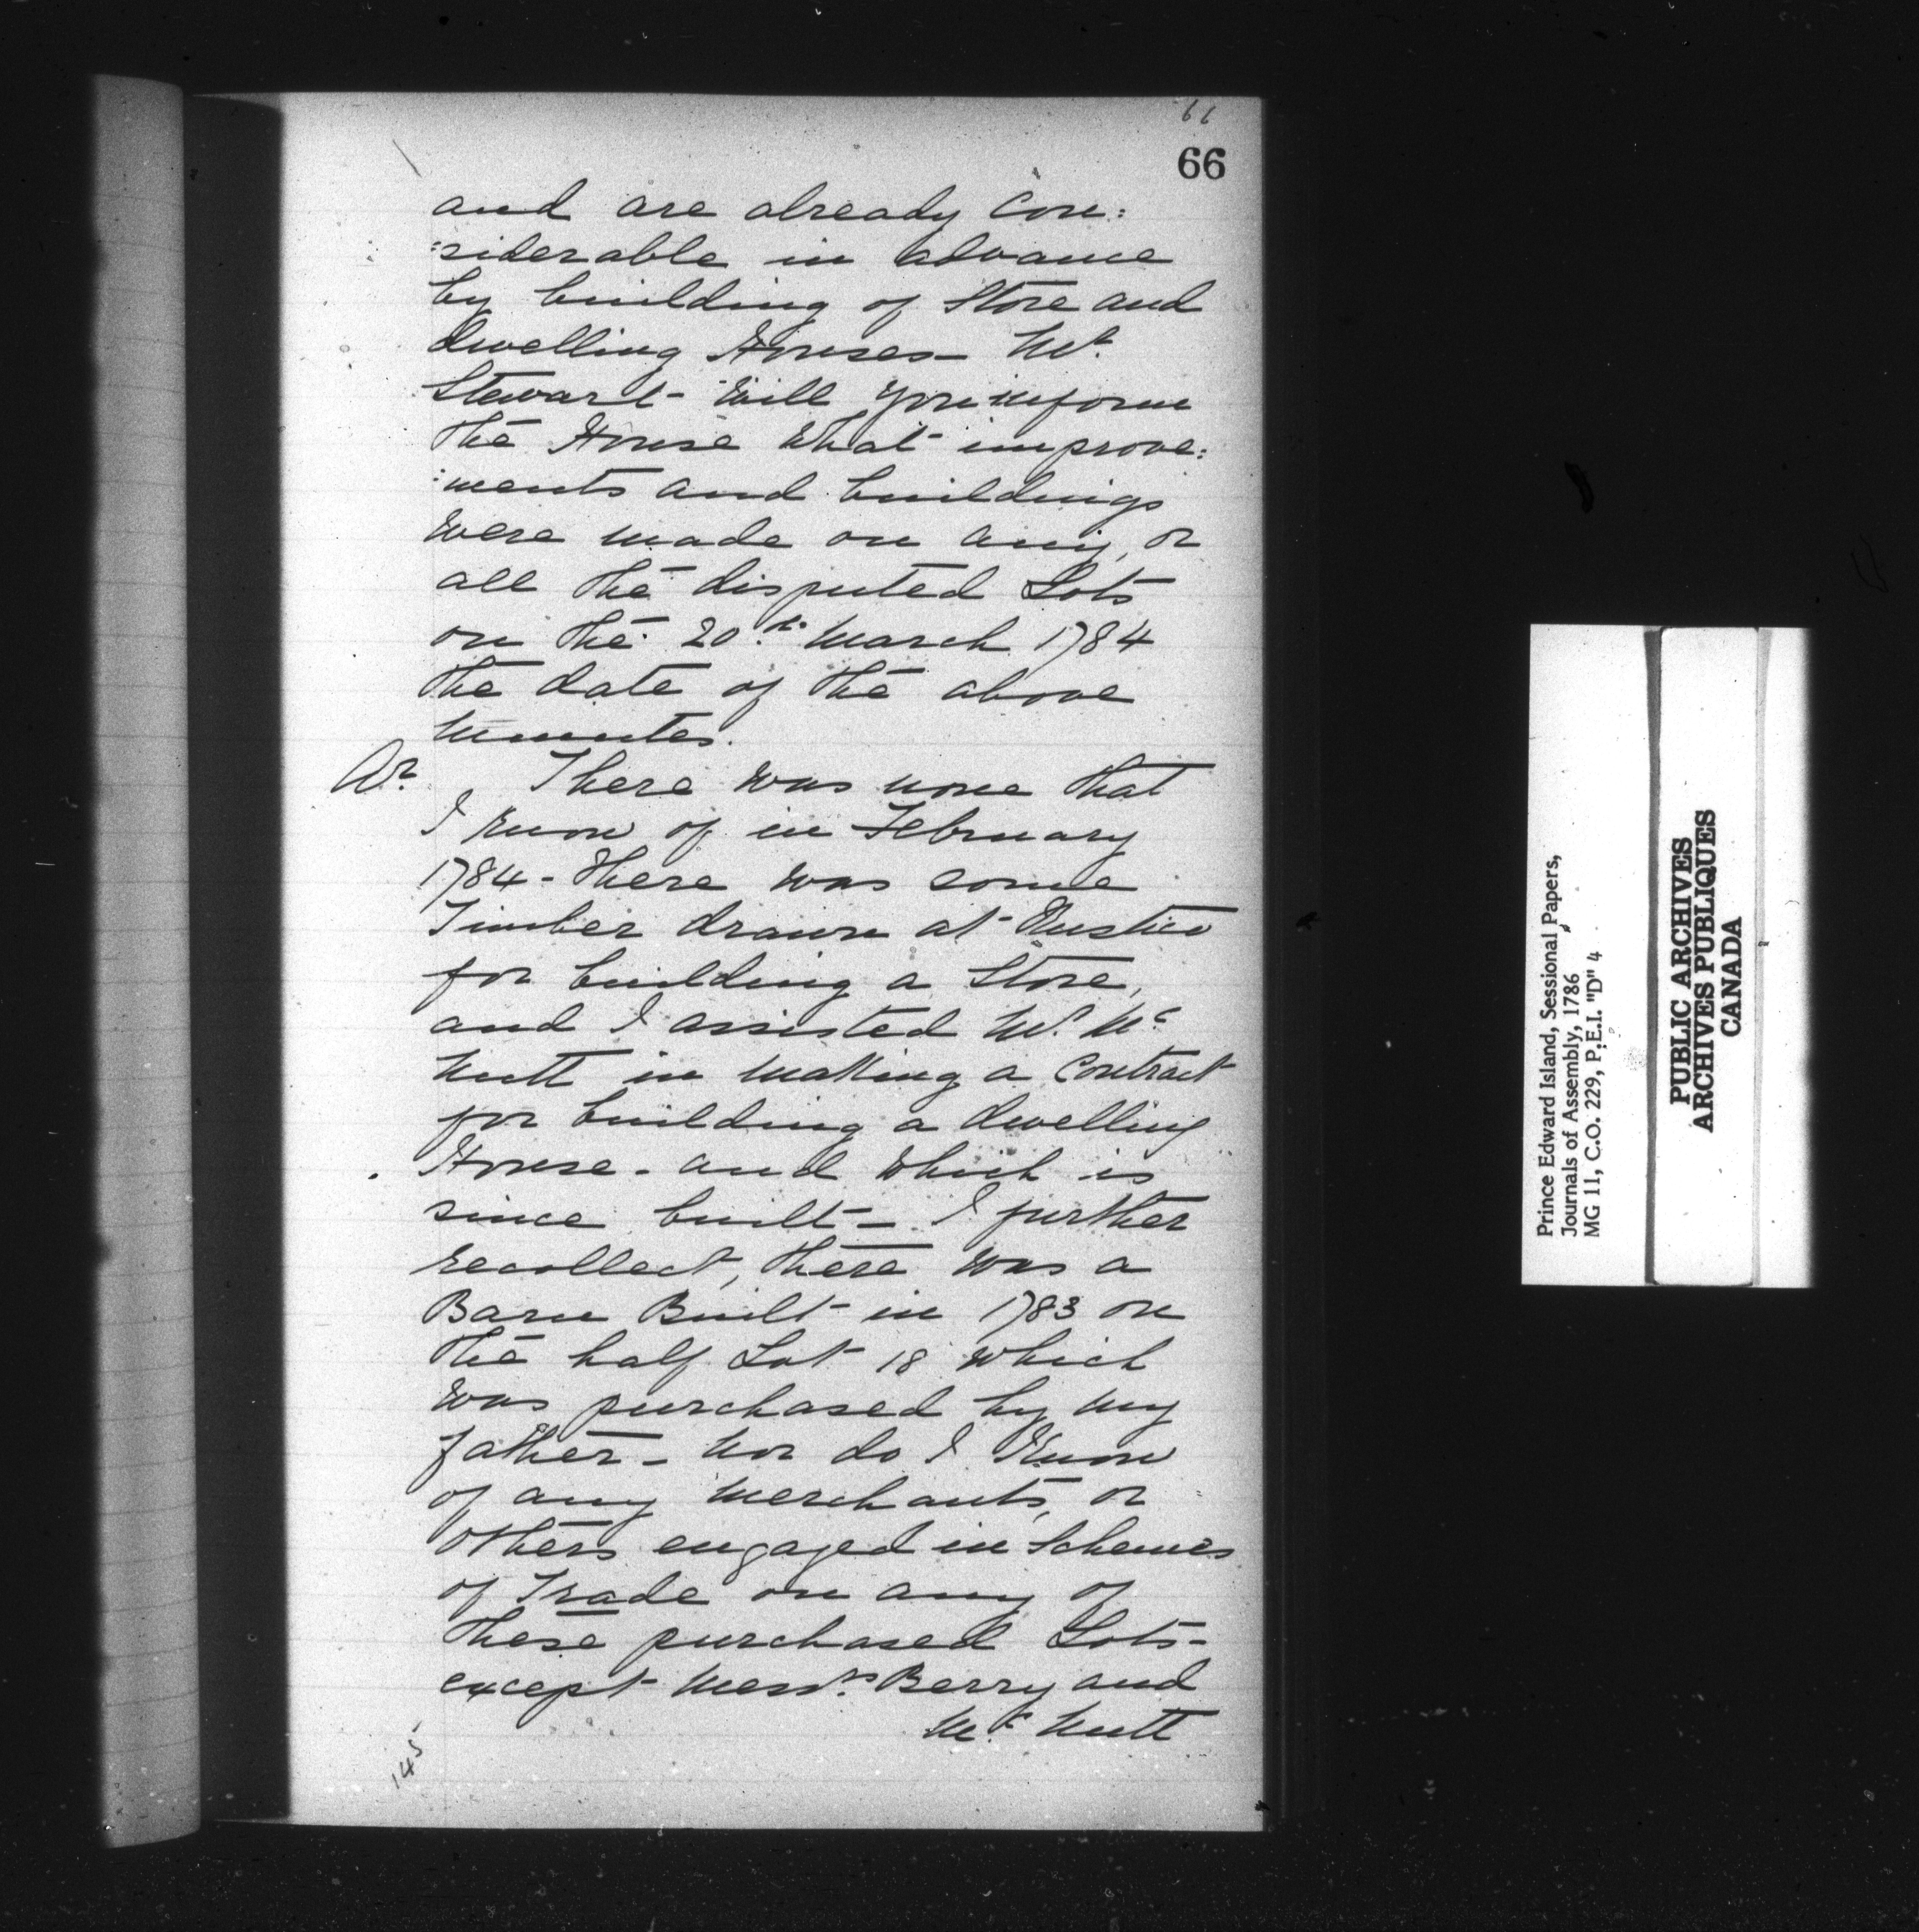 66
66
and are already Con:
:siderable in advance
by building of Store and
dwelling Houses - Mr.
Stewart - Will you inform
the House What improve:
:ments and buildings
Were made on any, or
all the disputed Lots
on the 20th. March 1784
the date of the above
Minutes.
Ar. There was none that
I know of in February
1784 - there was some
Timber drawn at Rustico
for building a Store,
and I assisted Mr. Mc
Nutt in making a Contract
for building a dwelling
House - and which is
since built - I further
recollect, there was a
Barn Built in 1783 on
the half Lot 18 which
was purchased by my
father - Nor do I Know
of any Merchants, or
Others engaged in Schemes
of Trade on any of
these purchased Lots -
except Messrs. Berry and
Mc. Nutt
145
Prince Edward Island, Sessional Papers,
Journals of Assembly, 1786
MG 11, C.O. 229, P.E.I. "D" 4
PUBLIC ARCHIVES
ARCHIVES PUBLIQUES
CANADA